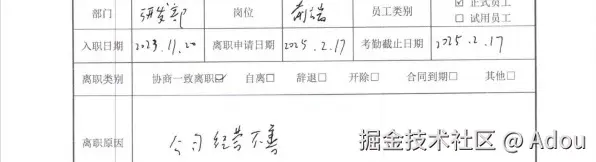 部门 研发部 岗位 前端 员工类别 ☑ 正式员工
☐ 试用员工
入职日期 2023.11.20 离职申请日期 2025.2.17 考勤截止日期 2025.2.17
离职类别 协商一致离职☑ 自离☐ 辞退☐ 开除☐ 合同到期☐ 其他☐
离职原因 公司经营不善
掘金技术社区 @ Adou